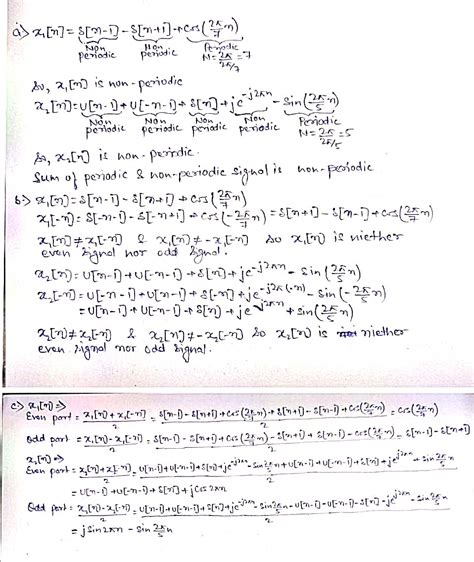 a) x₁[n] = δ[n-1] - δ[n+1] + cos(2π/7 n)
Non periodic Non periodic Periodic N = 2π/(2π/7) = 7
So, x₁[n] is non-periodic
x₂[n] = U[n-1] + U[-n-1] + δ[n] + je^-j2πn - sin(2π/5 n)
Non periodic Non periodic Non periodic Non periodic Periodic N = 2π/(2π/5) = 5
So, x₂[n] is non-periodic.
Sum of periodic & non-periodic signal is non-periodic
b) x₁[n] = δ[n-1] - δ[n+1] + cos(2π/7 n)
x₁[-n] = δ[-n-1] - δ[-n+1] + cos(-2π/7 n) = δ[n+1] - δ[n-1] + cos(2π/7 n)
x₁[n] ≠ x₁[-n] & x₁[n] ≠ -x₁[-n] So x₁[n] is niether
even signal nor odd signal.
x₂[n] = U[n-1] + U[-n-1] + δ[n] + je^-j2πn - sin(2π/5 n)
x₂[-n] = U[-n-1] + U[n-1] + δ[-n] + je^-j2π(-n) - sin(-2π/5 n)
= U[n-1] + U[-n-1] + δ[n] + je^j2πn + sin(2π/5 n)
x₂[n] ≠ x₂[-n] & x₂[n] ≠ -x₂[-n] So x₂[n] is niether
even signal nor odd signal.
c) x₁[n] ⇒
Even part = (x₁[n] + x₁[-n])/2 = (δ[n-1] - δ[n+1] + cos(2π/7 n) + δ[n+1] - δ[n-1] + cos(2π/7 n))/2 = cos(2π/7 n)
Odd part = (x₁[n] - x₁[-n])/2 = (δ[n-1] - δ[n+1] + cos(2π/7 n) - δ[n+1] + δ[n-1] - cos(2π/7 n))/2 = δ[n-1] - δ[n+1]
x₂[n] ⇒
Even part = (x₂[n] + x₂[-n])/2 = (U[n-1] + U[-n-1] + δ[n] + je^-j2πn - sin 2π/5 n + U[n-1] + U[-n-1] + δ[n] + je^j2πn + sin 2π/5 n)/2
= U[n-1] + U[-n-1] + δ[n] + j cos 2πn
Odd part = (x₂[n] - x₂[-n])/2 = (U[n-1] + U[-n-1] + δ[n] + je^-j2πn - sin 2π/5 n - U[n-1] - U[-n-1] - δ[n] - je^j2πn - sin 2π/5 n)/2
= j sin 2πn - sin 2π/5 n